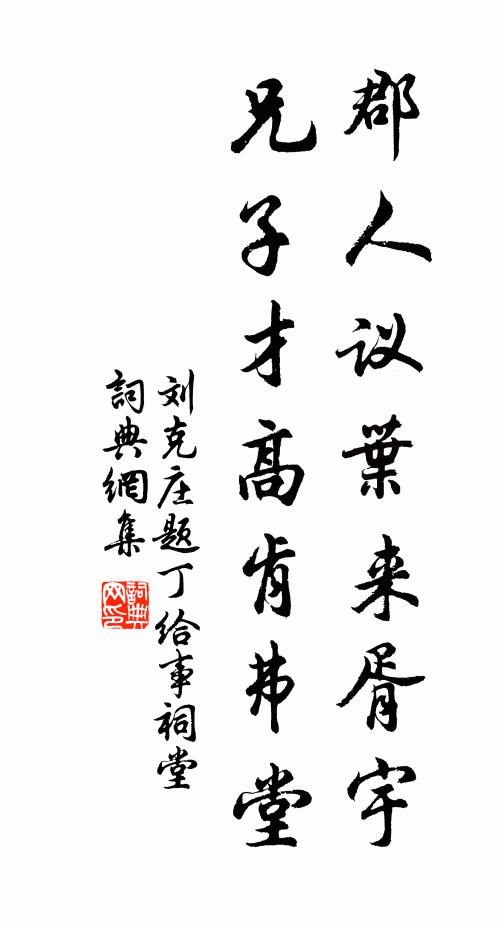 郡人议葉来胥宇
兄子才高肯弗堂
刘克庄题丁给事祠堂
詞典網集
詞典网印